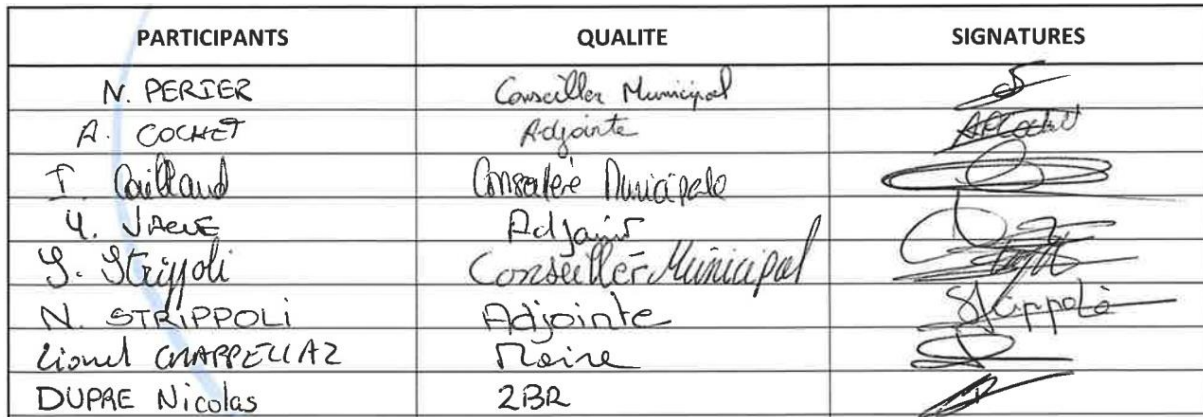 PARTICIPANTS QUALITE SIGNATURES
N. PERIER Conseiller Municipal
A. COCHET Adjointe
I. Caillaud Conseillère Municipale
Adjoint
S. Strippoli Conseiller Municipal
N. STRIPPOLI Adjointe Strippoli
Lionel CHAPPELLAZ Maire
DUPRE Nicolas 2BR